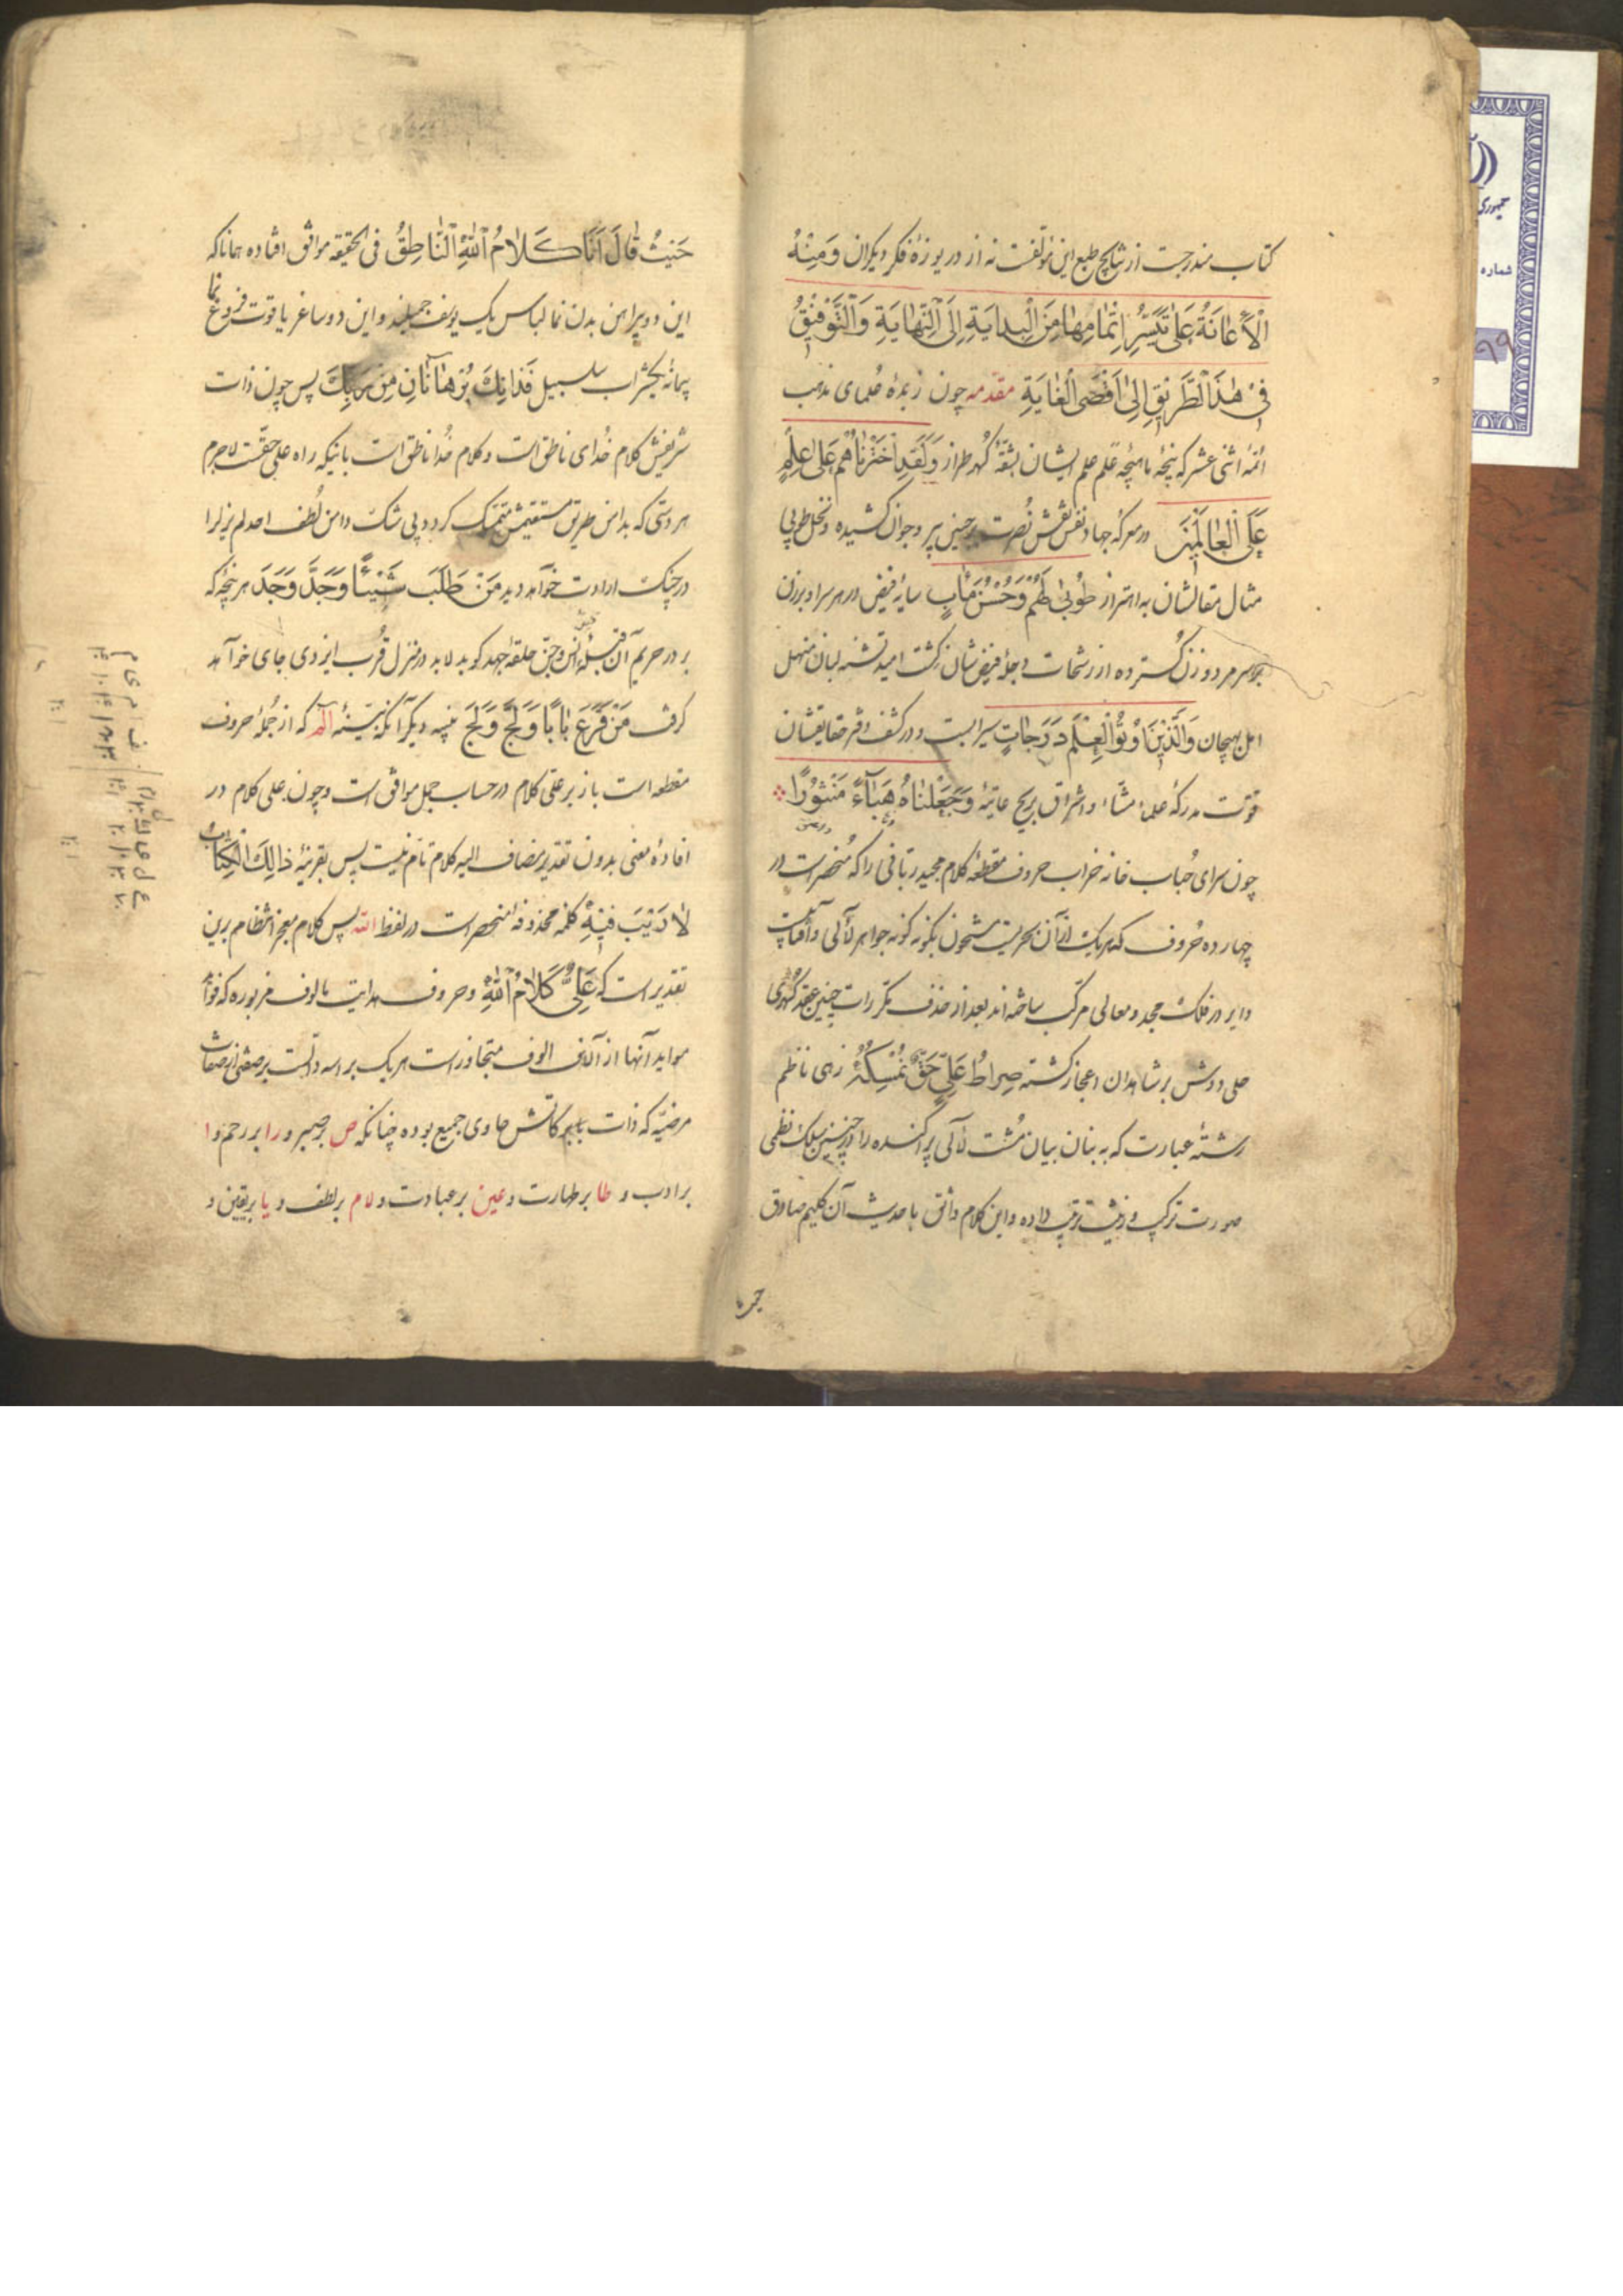 کتاب مندرجست از نتایج طبع این مؤلفست نه از دریوزهٔ فکر دیکران وَمِنْهُ
الْاِعٰانَةُ عَلٰی تَیَسُّرِ اِتْمٰامِهٰا مِنَ الْبِدٰایَةِ اِلَی النِّهٰایَةِ وَالتَّوْفیٖقُ
فیٖ هٰذَا الطَّریٖقِ اِلیٰ اَقْصَی الْغٰایَةِ مقدّمه چون زبدهٔ علمای مذهب
ائمهٔ اثنی عشر که پنجهٔ ماهچهٔ علم علم ایشان بشقّهٔ کهر طراز وَلَقَدِ اخْتَرْنٰاهُمْ عَلیٰ عِلْمٍ
عَلَی الْعٰالَمیٖنَ در معرکهٔ جهاد نفس نقش نصرت بر جبین پیر و جوان کشیده و نخل طوبی
مثال مقالشان به اهتزاز طُوْبیٰ لَهُمْ وَحُسْنُ مَاٰبٍ سایهٔ فیض در هر سرا و برزن
بر سر مرد و زن کسترده از رشحات دجلهٔ فیضشان کشت امید تشنه لبان منهل
اهل بهیجان وَالَّذیٖنَ اُوْتُوا الْعِلْمَ دَرَجٰاتٍ سیرابست و در کشف دفتر حقایقشان
قوّت مدرکهٔ علماء مشّاء و اشراق بریح عاتیهٔ وَجَعَلْنٰاهُ هَبٰآءً مَنْثُوْرًا
چون سرای حُباب خانه خراب حروف مقطعهٔ کلام مجید ربّانی را که مُنحصر است در
چهارده حُروف که هر یک از آن بحریست مشحون بکونه کونه جواهر لٔالی و آفتابیست
دایر در فلک مجد و معالی مرکّب ساخته‌اند بعد از حذف مکرّرات چنین عقد کُهری
حلی دوش بر شاهدان اعجاز کشته صِرٰاطُ عَلِیٍّ حَقٌّ نُمْسِکُهُ زهی ناظم
رشتهٔ عبارت که به بنان بیان مُشت لٔالی پراکنده را در چنین سلک نظمی
صورت ترکیب و زینت ترتیب داده و این کلام واثق با حدیث آن کلیم صادق
حیث
حَیْثُ قٰالَ اَنَا کَلٰامُ اللّٰهِ النّٰاطِقُ فی الحقیقه موافق افتاده همانا که
این دو پیراهن بدن نما لباس یک یوسف جمیلند و این دو ساغر یاقوت فروغ نما
پیمانهٔ یکشراب سلسبیل فَذٰانِکَ بُرْهٰانٰانِ مِنْ رَبِّکَ پس چون ذات
شریفش کلام خُدای ناطق است و کلام خُدا ناطق است باینکه راه علی حقّست لاجرم
هر دستی که بدامن طریق مستقیمش متمسّک کردد بی شک دامن لُطف احد لم یزل را
در چنک ارادت خواهد دید مَنْ طَلَبَ شَیْئًا وَجَدَّ وَجَدَ هر پنجهٔ که
بر در حریم آن قبلهٔ انس و جنّ حلقهٔ جهد کوبد لابد در منزل قُرب ایزدی جای خواهد
کرفت مَنْ قَرَعَ بٰابًا وَلَجَّ وَلَجَ بینهٔ دیکر آنکه بیّنهٔ الم که از جُملهٔ حروف
مقطعه است باز بر علی کلام در حساب جمل موافق است و چون علی کلام در
افادهٔ معنی بدون تقدیر مضاف الیه کلام تام نیست پس بقرینهٔ ذٰالِکَ الْکِتٰابُ
لٰا رَیْبَ فیٖهِ کلمهٔ محذوفه منحصر است در لفظ اللّه پس کلام معجز انتظام برین
تقدیر است که عَلِیٌّ کَلٰامُ اللّٰهِ و حروف هدایت مالوف مزبوره که فواید
مواید آنها از آلاف الوف متجاوز است هر یک بر اسه دالست بر صفتی از صفات
مرضیّه که ذات حاوی جمیع بوده چنانکه ص بر صبر و را بر رحم و ا
بر ادب و طا بر طهارت و عین بر عبادت و لام بر لطف و یا بر یقین و
جمهوری
شماره